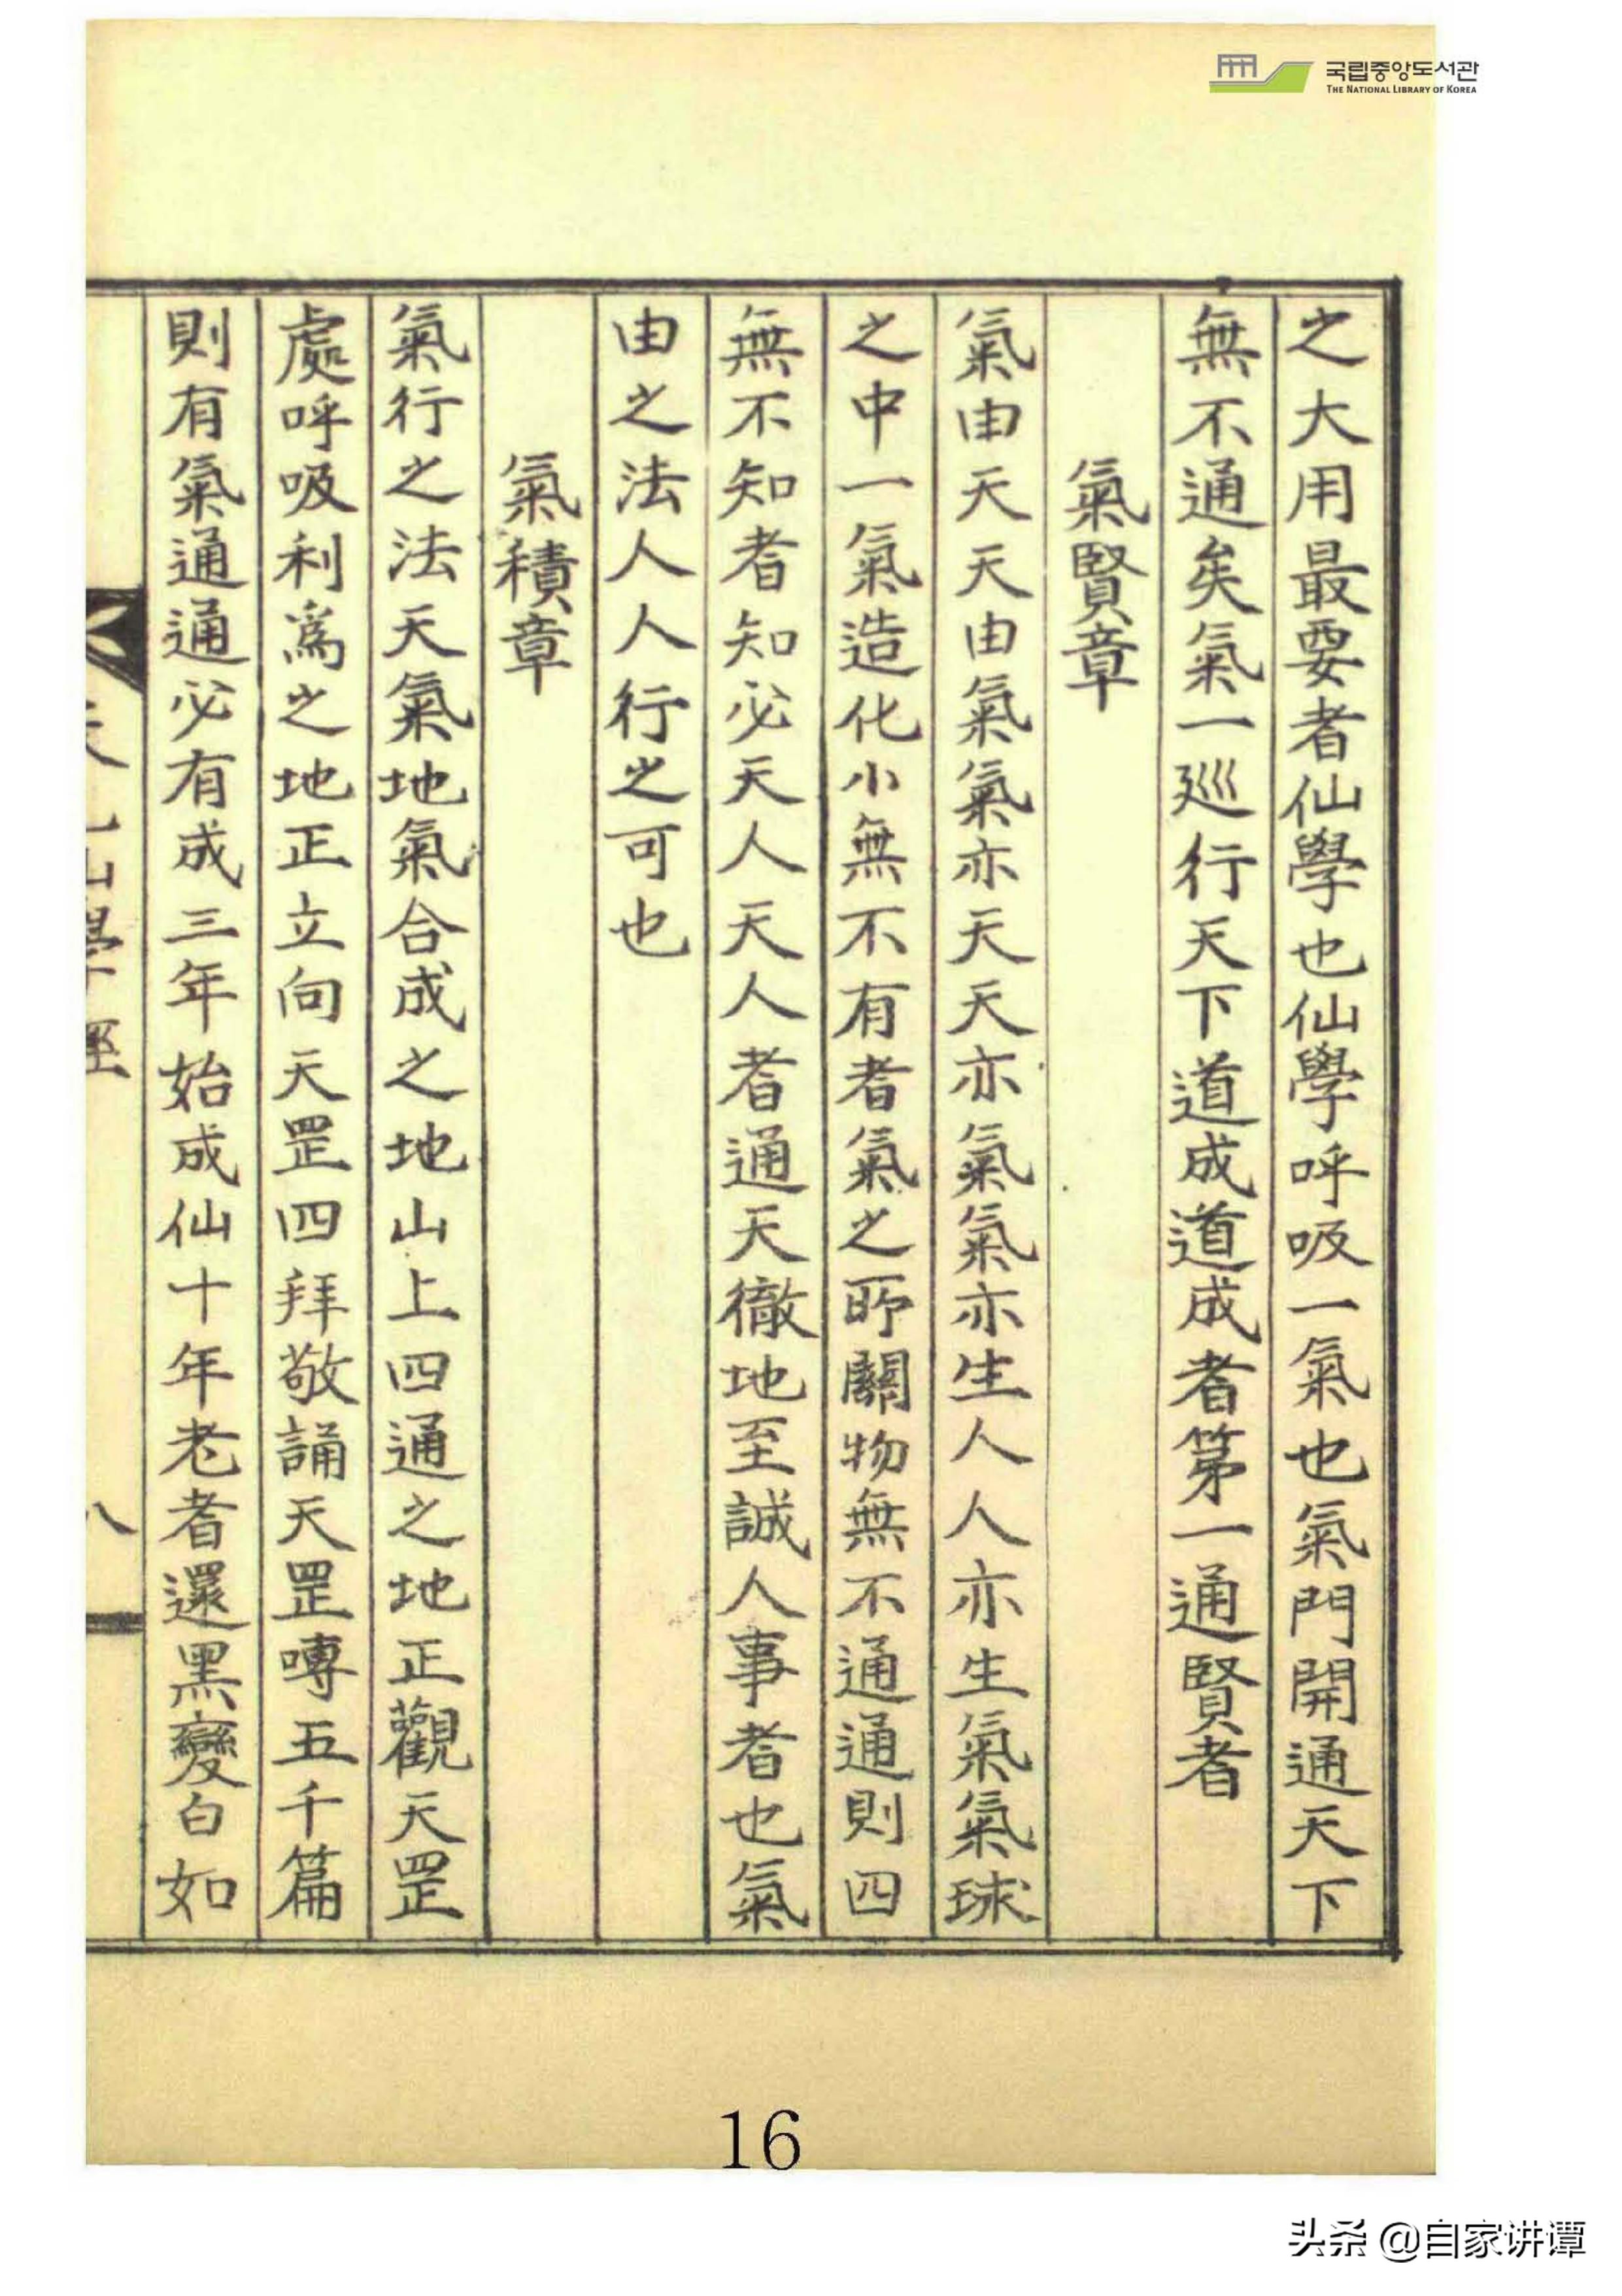 국립중앙도서관
THE NATIONAL LIBRARY OF KOREA
之大用最要者仙學也仙學呼吸一氣也氣門開通天下
無不通矣氣一巡行天下道成道成者第一通賢者
氣賢章
氣由天天由氣氣亦天天亦氣氣亦生人人亦生氣氣球
之中一氣造化小無不有者氣之所關物無不通通則四
無不知者知必天人天人者通天徹地至誠人事者也氣
由之法人人行之可也
氣積章
氣行之法天氣地氣合成之地山上四通之地正觀天罡
處呼吸利爲之地正立向天罡四拜敬誦天罡嘑五千篇
則有氣通通必有成三年始成仙十年老者還黑變白如
學經
八
16
头条 @自家讲谭